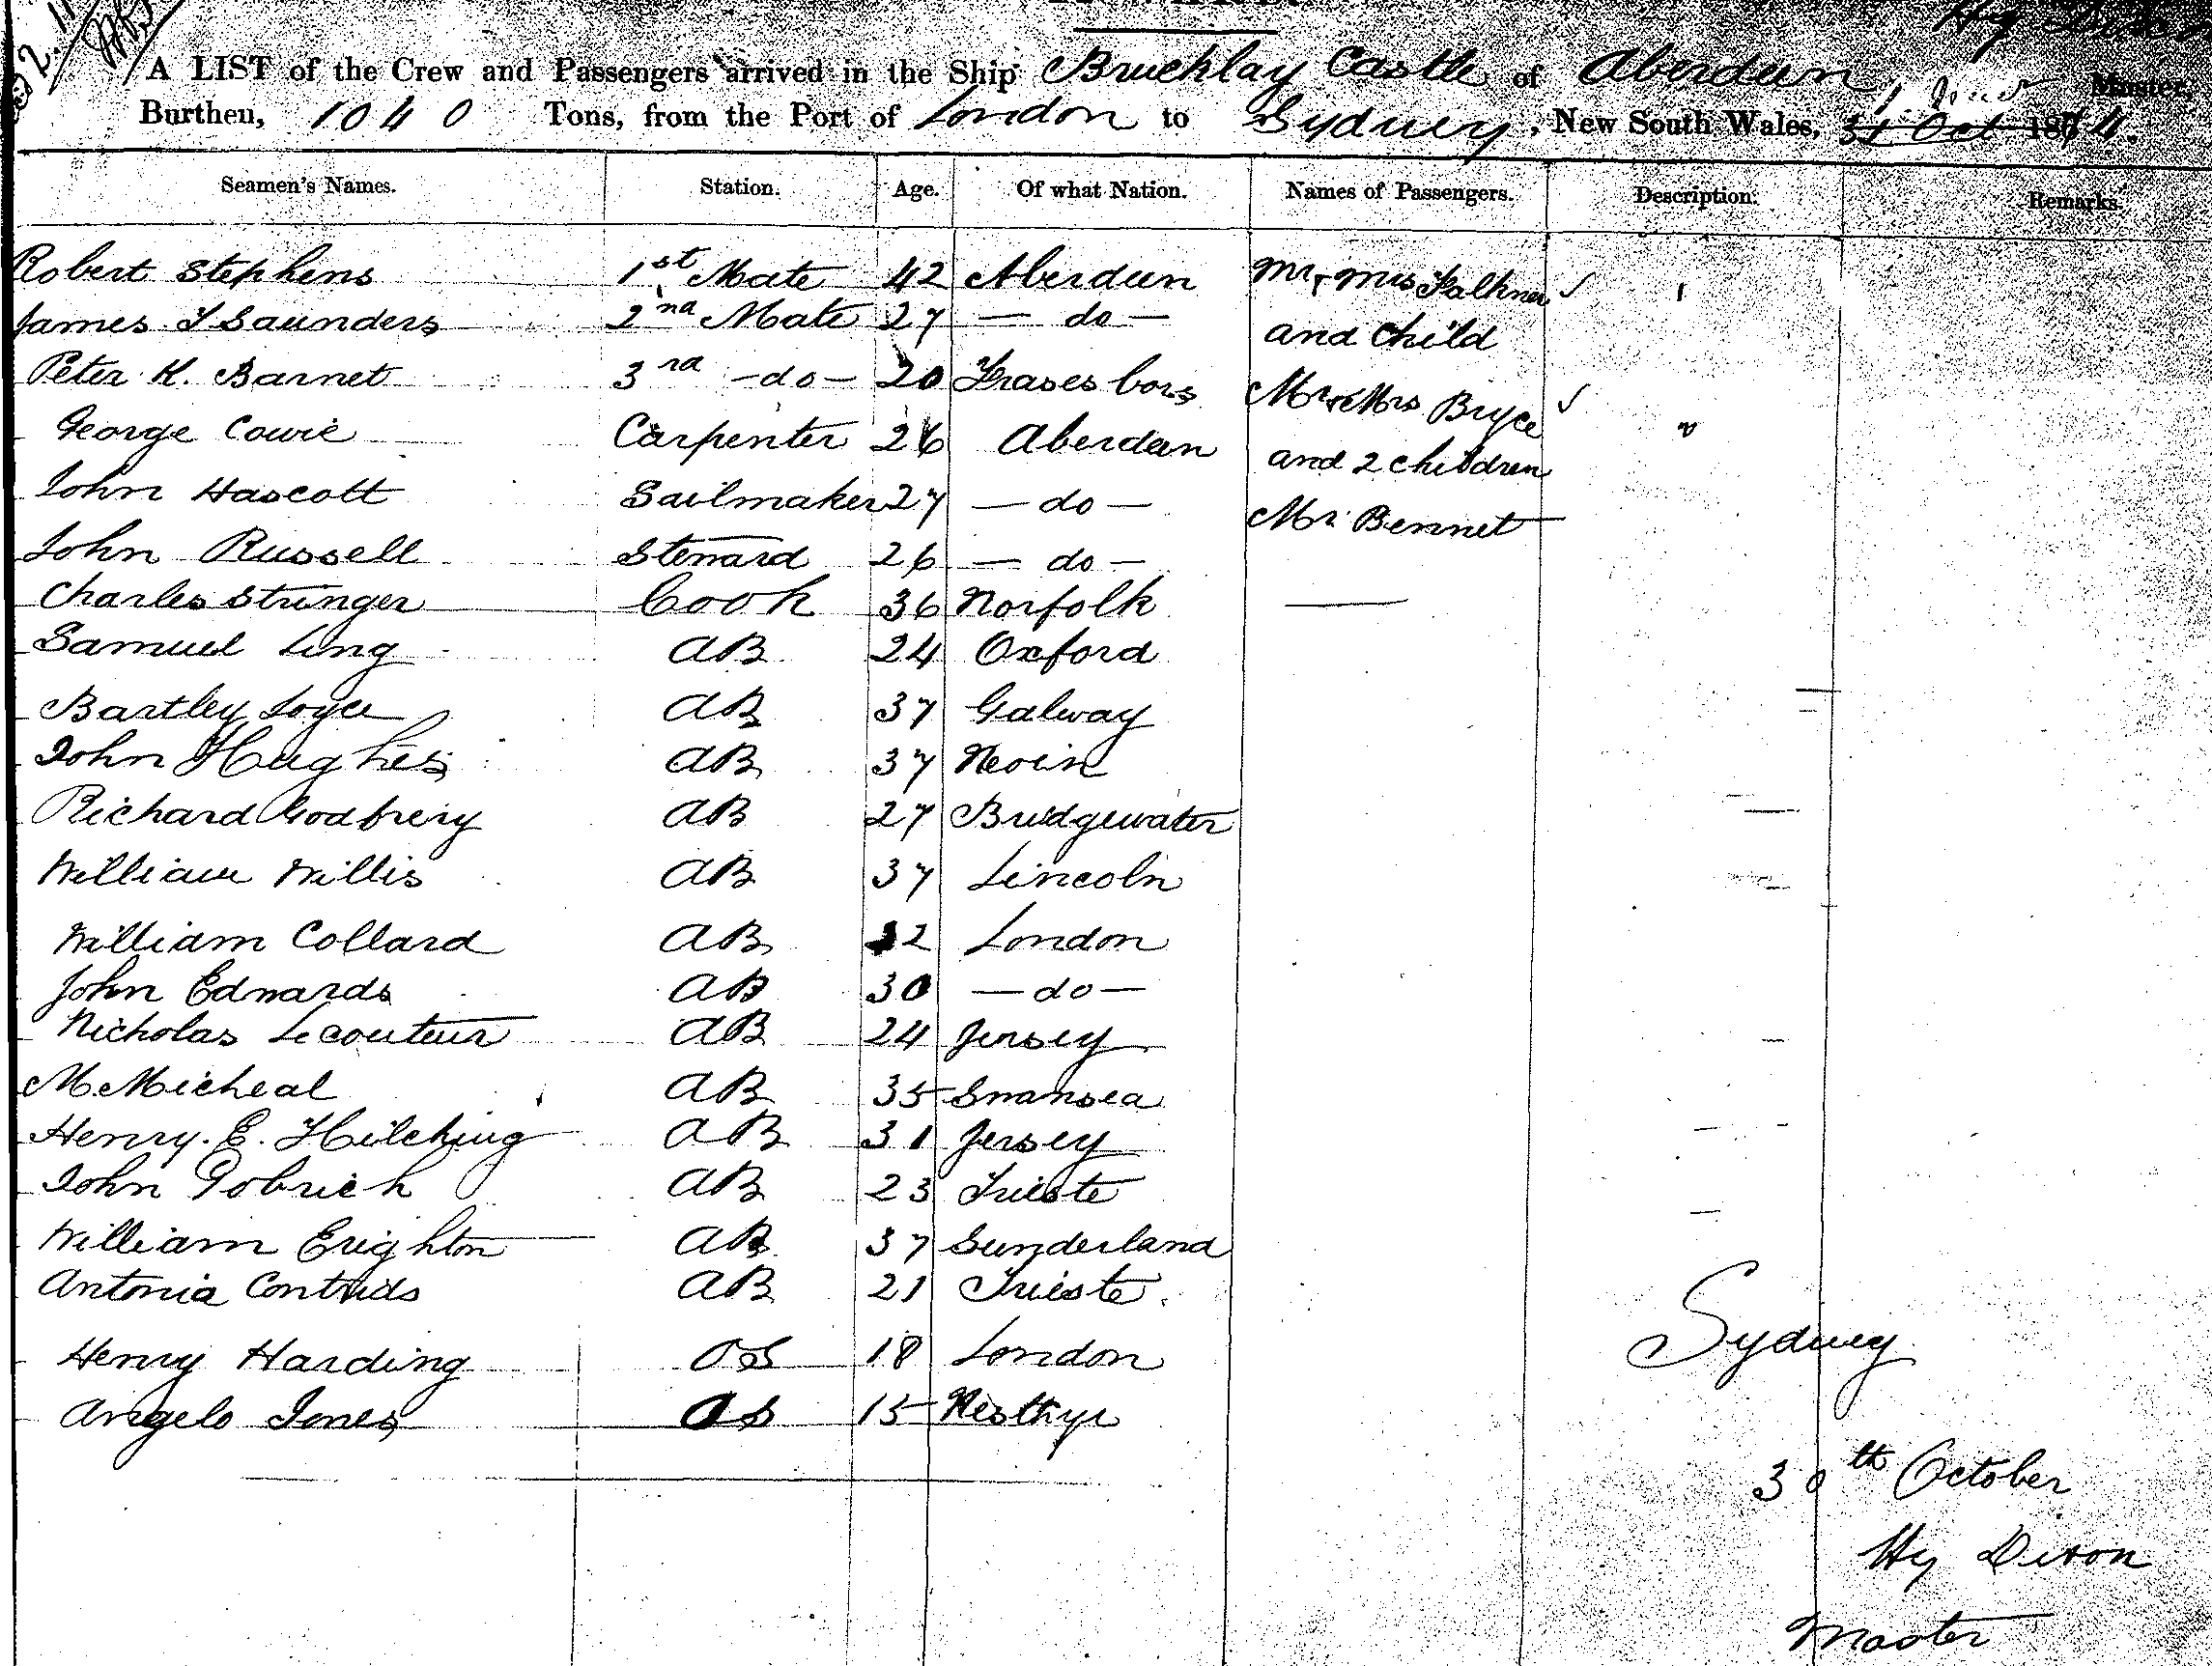 A LIST of the Crew and Passengers arrived in the Ship Brucklay Castle of Aberdeen Hy Dixon Master,
Burthen, 1040 Tons, from the Port of London to Sydney, New South Wales, 31 Oct 1874.
Seamen's Names. Station. Age. Of what Nation. Names of Passengers. Description. Remarks.
Robert Stephens 1st Mate 42 Aberdeen Mr & Mrs Falkner
James Saunders 2nd Mate 27 — do — and Child
Peter K. Barnet 3rd — do — 20 Mr & Mrs Bryce
George Cowie Carpenter 26 Aberdeen and 2 children
John Hascott Sailmaker 27 — do — Mr Bennet
John Russell Steward 26 — do —
Charles Stringer Cook 36 Norfolk
Samuel Ling AB 24 Oxford
Bartley Joyce AB 37 Galway
John Hughes AB 37 Nevin
Richard Godfrery AB 27 Bridgewater
William Willis AB 37 Lincoln
William Collard AB London
John Edwards AB 30 — do —
Nicholas Lecouteur AB 24 Jersey
M. Micheal AB 35 Swansea
Henry. E. AB 31 Jersey
John AB 23 Trieste
William AB 37 Sunderland
Antonia AB 21 Trieste.
Henry Harding OS 18 London
Angelo Jones OS 15
Sydney
30th October
Hy Dixon
Master